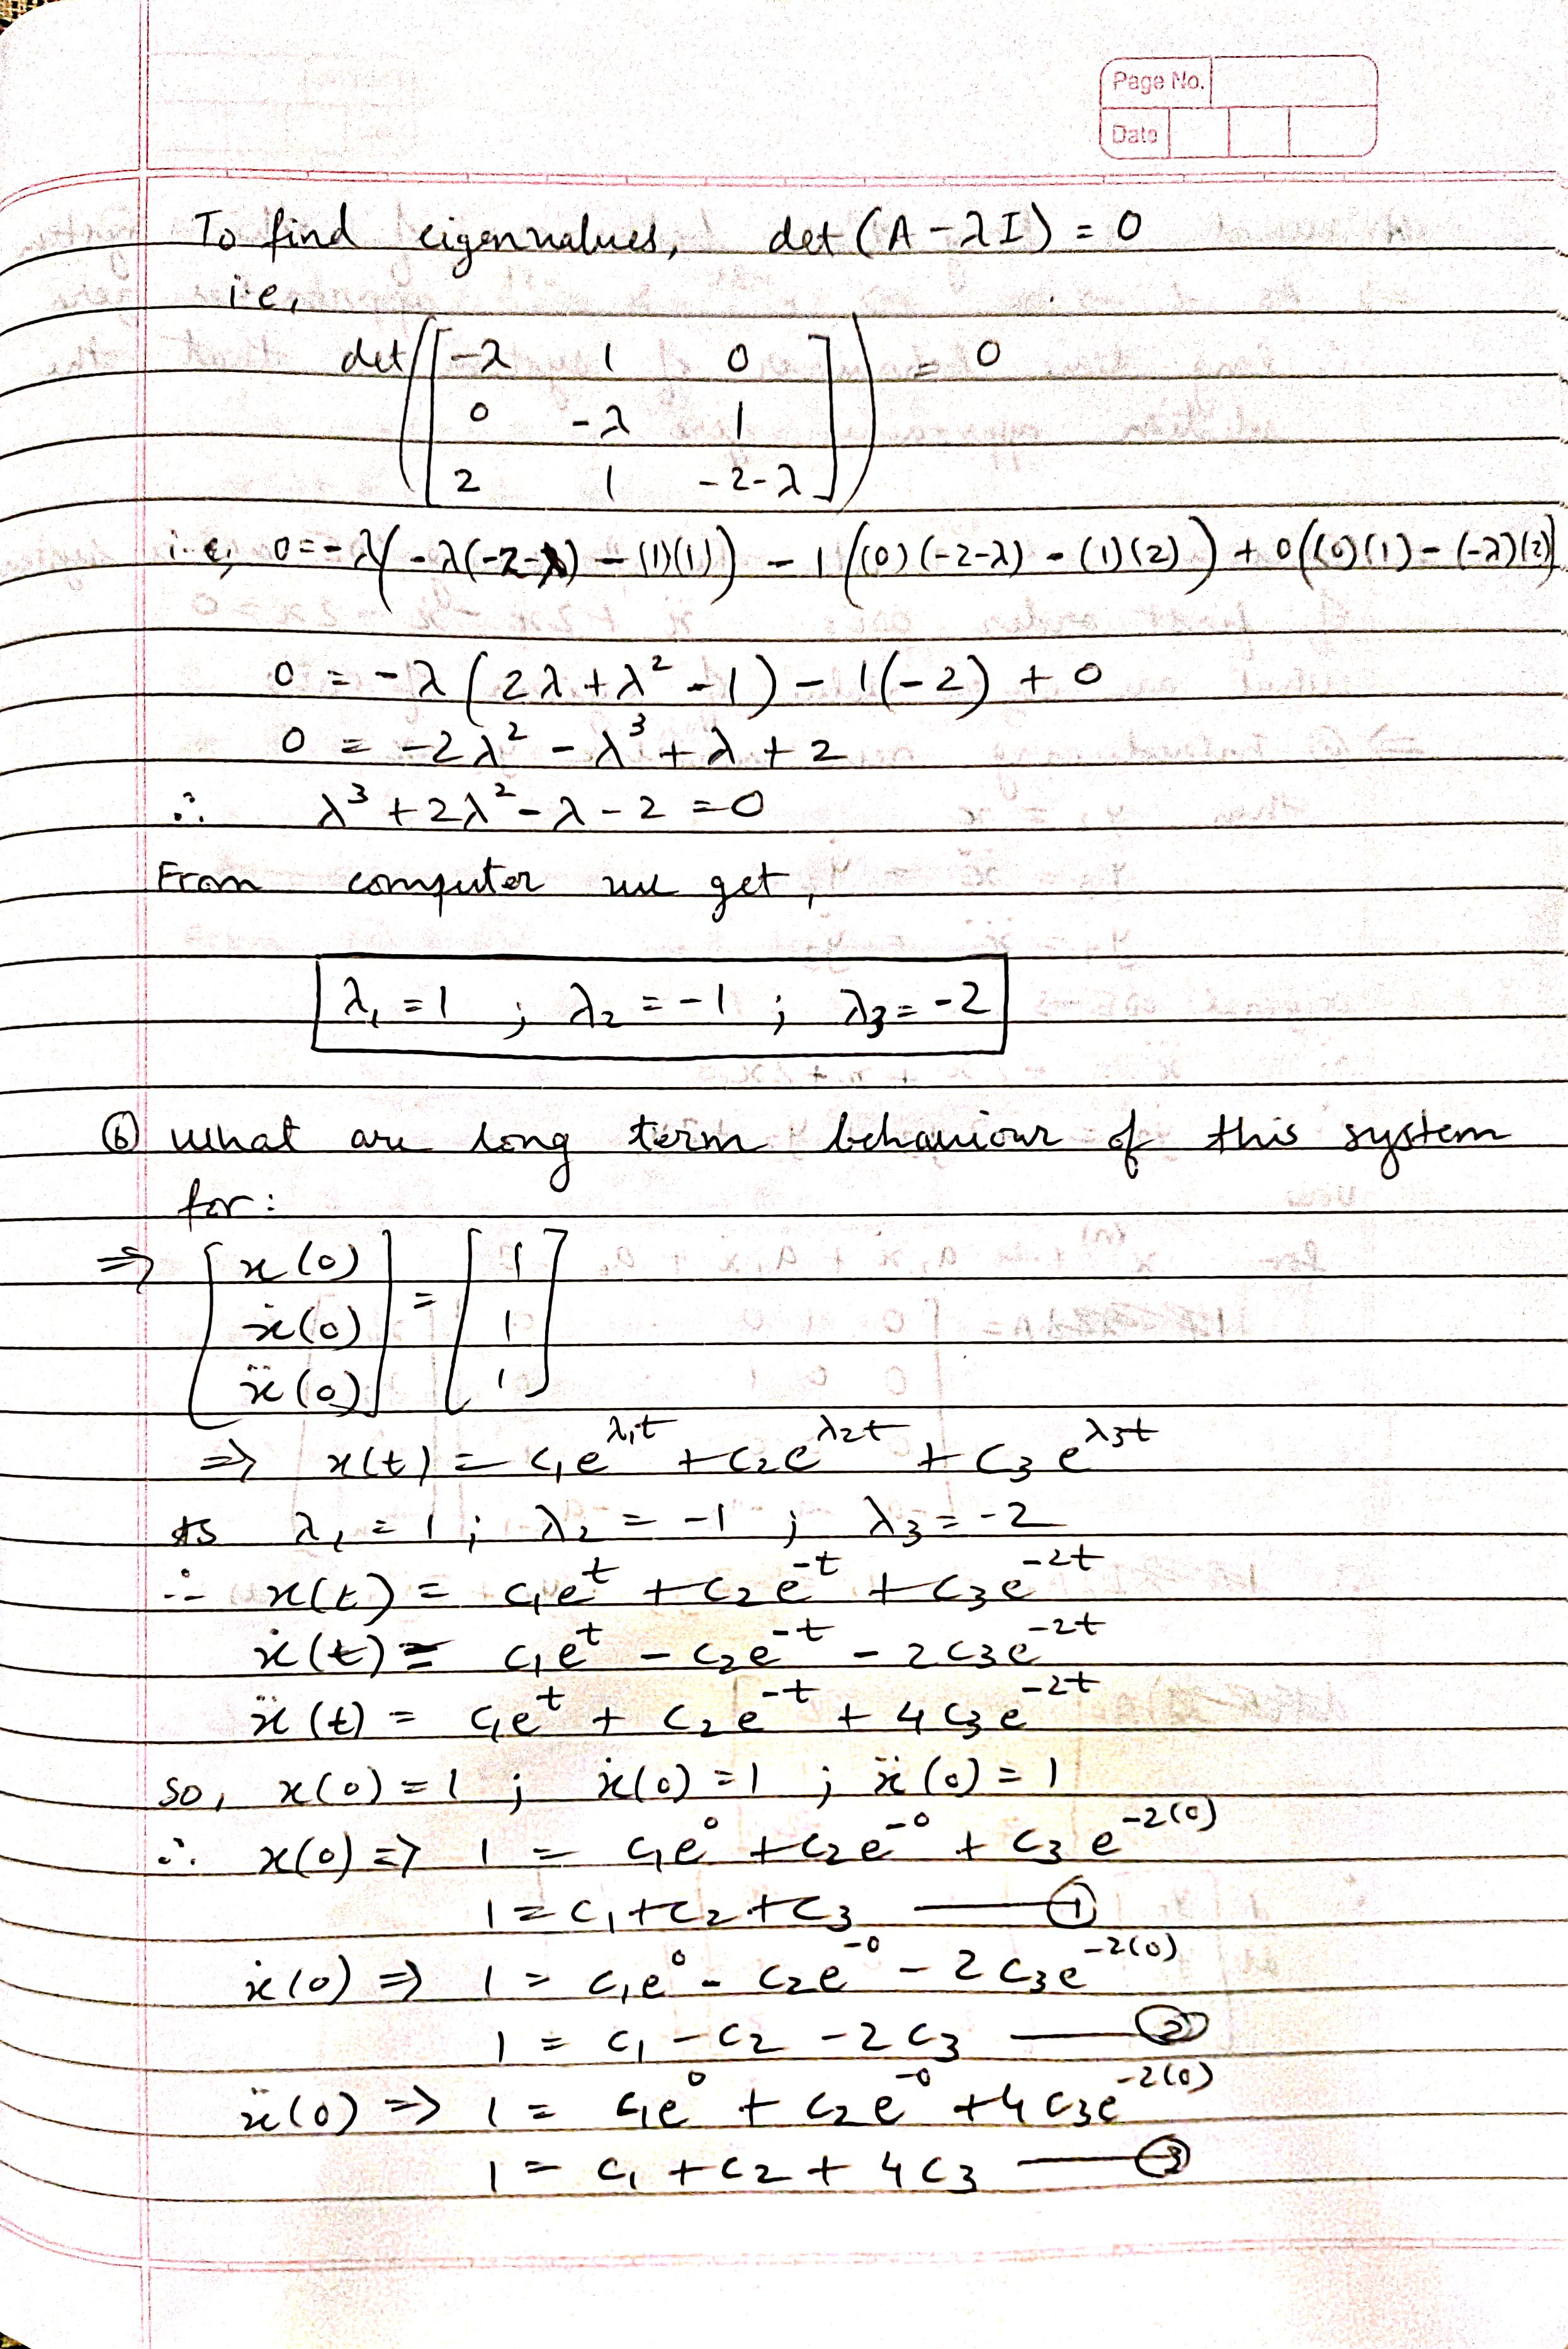 Page No.
Date
To find eigenvalues, det (A - λI) = 0
i.e,
det([-λ 1 0
0 -λ 1
2 1 -2-λ]) = 0
i.e, 0 = -λ(-λ(-2-λ) - (1)(1)) - 1((0)(-2-λ) - (1)(2)) + 0((0)(1) - (-λ)(2)
0 = -λ(2λ + λ² - 1) - 1(-2) + 0
0 = -2λ² - λ³ + λ + 2
∴ λ³ + 2λ² - λ - 2 = 0
From computer we get,
λ₁ = 1 ; λ₂ = -1 ; λ₃ = -2
⑥ what are long term behaviour of this system
for:
⇒ [x(0)
ẋ(0)
ẍ(0)] = [1
1
1]
⇒ x(t) = c₁e^λ₁t + c₂e^λ₂t + c₃e^λ₃t
As λ₁ = 1 ; λ₂ = -1 ; λ₃ = -2
∴ x(t) = c₁e^t + c₂e^-t + c₃e^-2t
ẋ(t) = c₁e^t - c₂e^-t - 2c₃e^-2t
ẍ(t) = c₁e^t + c₂e^-t + 4c₃e^-2t
so, x(0) = 1 ; ẋ(0) = 1 ; ẍ(0) = 1
∴ x(0) ⇒ 1 = c₁e^0 + c₂e^-0 + c₃e^-2(0)
1 = c₁ + c₂ + c₃ —— ①
ẋ(0) ⇒ 1 = c₁e^0 - c₂e^-0 - 2c₃e^-2(0)
1 = c₁ - c₂ - 2c₃ —— ②
ẍ(0) ⇒ 1 = c₁e^0 + c₂e^-0 + 4c₃e^-2(0)
1 = c₁ + c₂ + 4c₃ —— ③